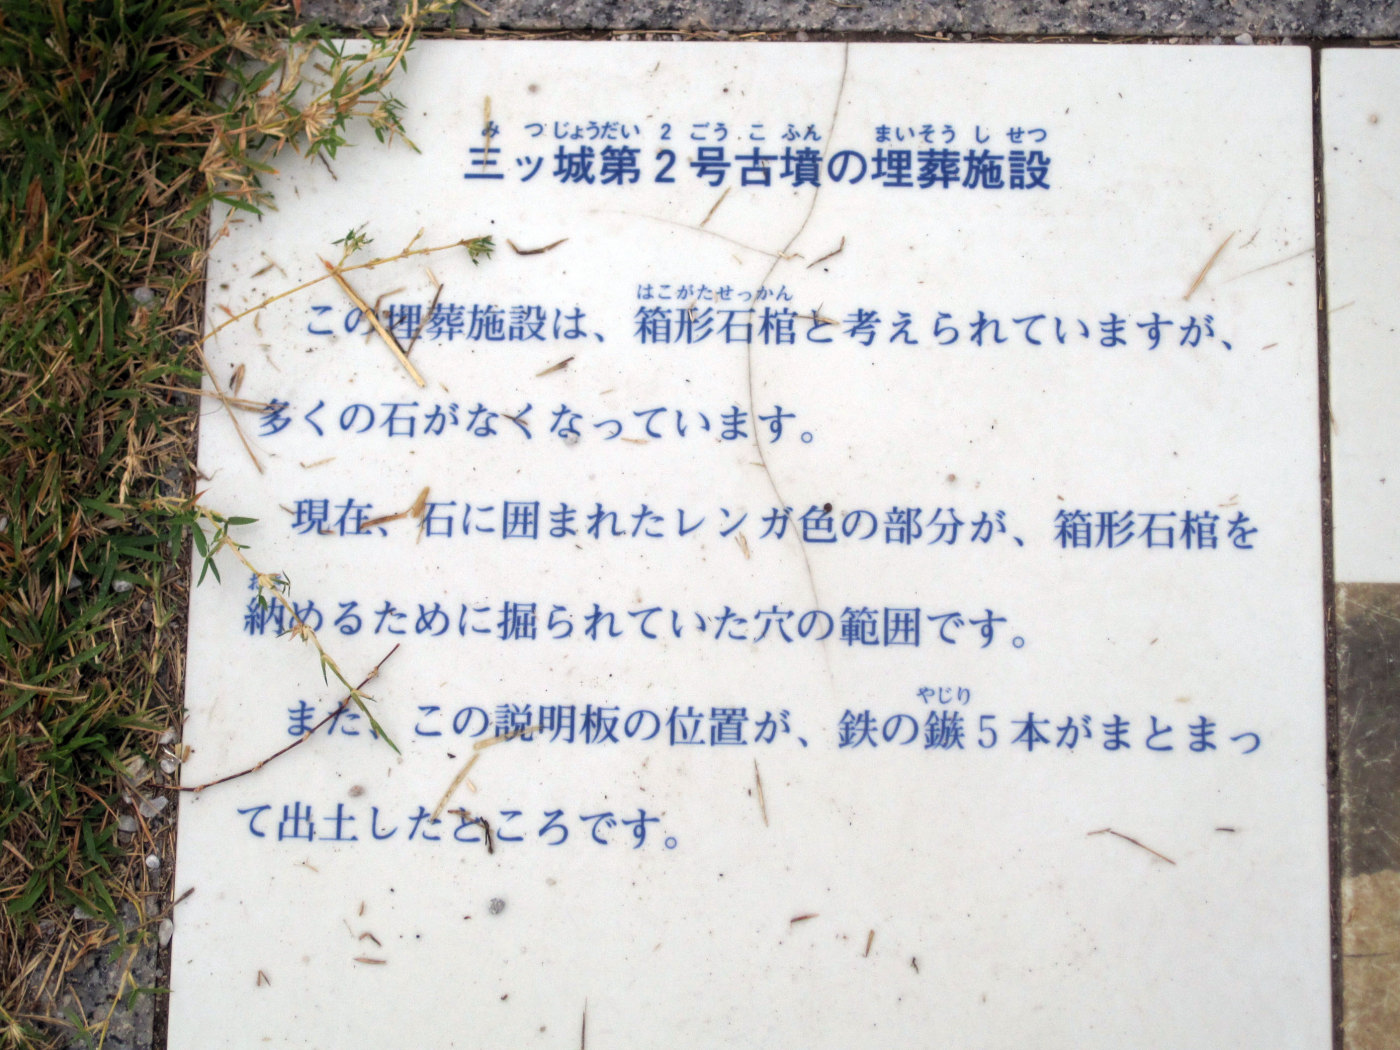 みつじょうだい2ごうこふん まいそうしせつ
三ッ城第2号古墳の埋葬施設
はこがたせっかん
この埋葬施設は、箱形石棺と考えられていますが、
多くの石がなくなっています。
現在、石に囲まれたレンガ色の部分が、箱形石棺を
納めるために掘られていた穴の範囲です。
やじり
また、この説明板の位置が、鉄の鏃5本がまとまっ
て出土したところです。